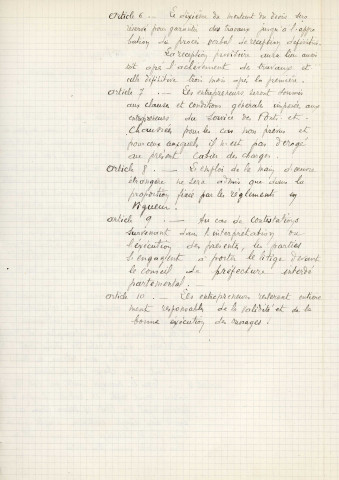 Article 6 . _ Le dixième du montant du devis sera
réservé pour garantie des travaux jusqu'à l'appro
bation du procès verbal de réception définitive.
La réception provisoire aura lieu aussi
tôt après l'achèvement des travaux et
celle définitive trois mois après la première.
Article 7 . _ Les entrepreneurs seront soumis
aux clauses et conditions générales imposées aux
entrepreneurs du service des Ponts et -
Chaussées pour les cas non prévus et
pour ceux auxquels il n'est pas dérogé
au présent Cahier des charges.
Article 8 . _ L'emploi de la main d'œuvre
étrangère ne sera admis que dans la
proportion fixée par les règlements en
vigueur.
Article 9 . _ Au cas de contestations
survenant dans l'interprétation ou
l'exécution des présentes, les parties
s'engagent à porter le litige devant
le conseil de préfecture interdé
partemental . _
Article 10 . _ Les entrepreneurs resteront entière
ment responsables de la solidité et de la
bonne exécution des ouvrages .